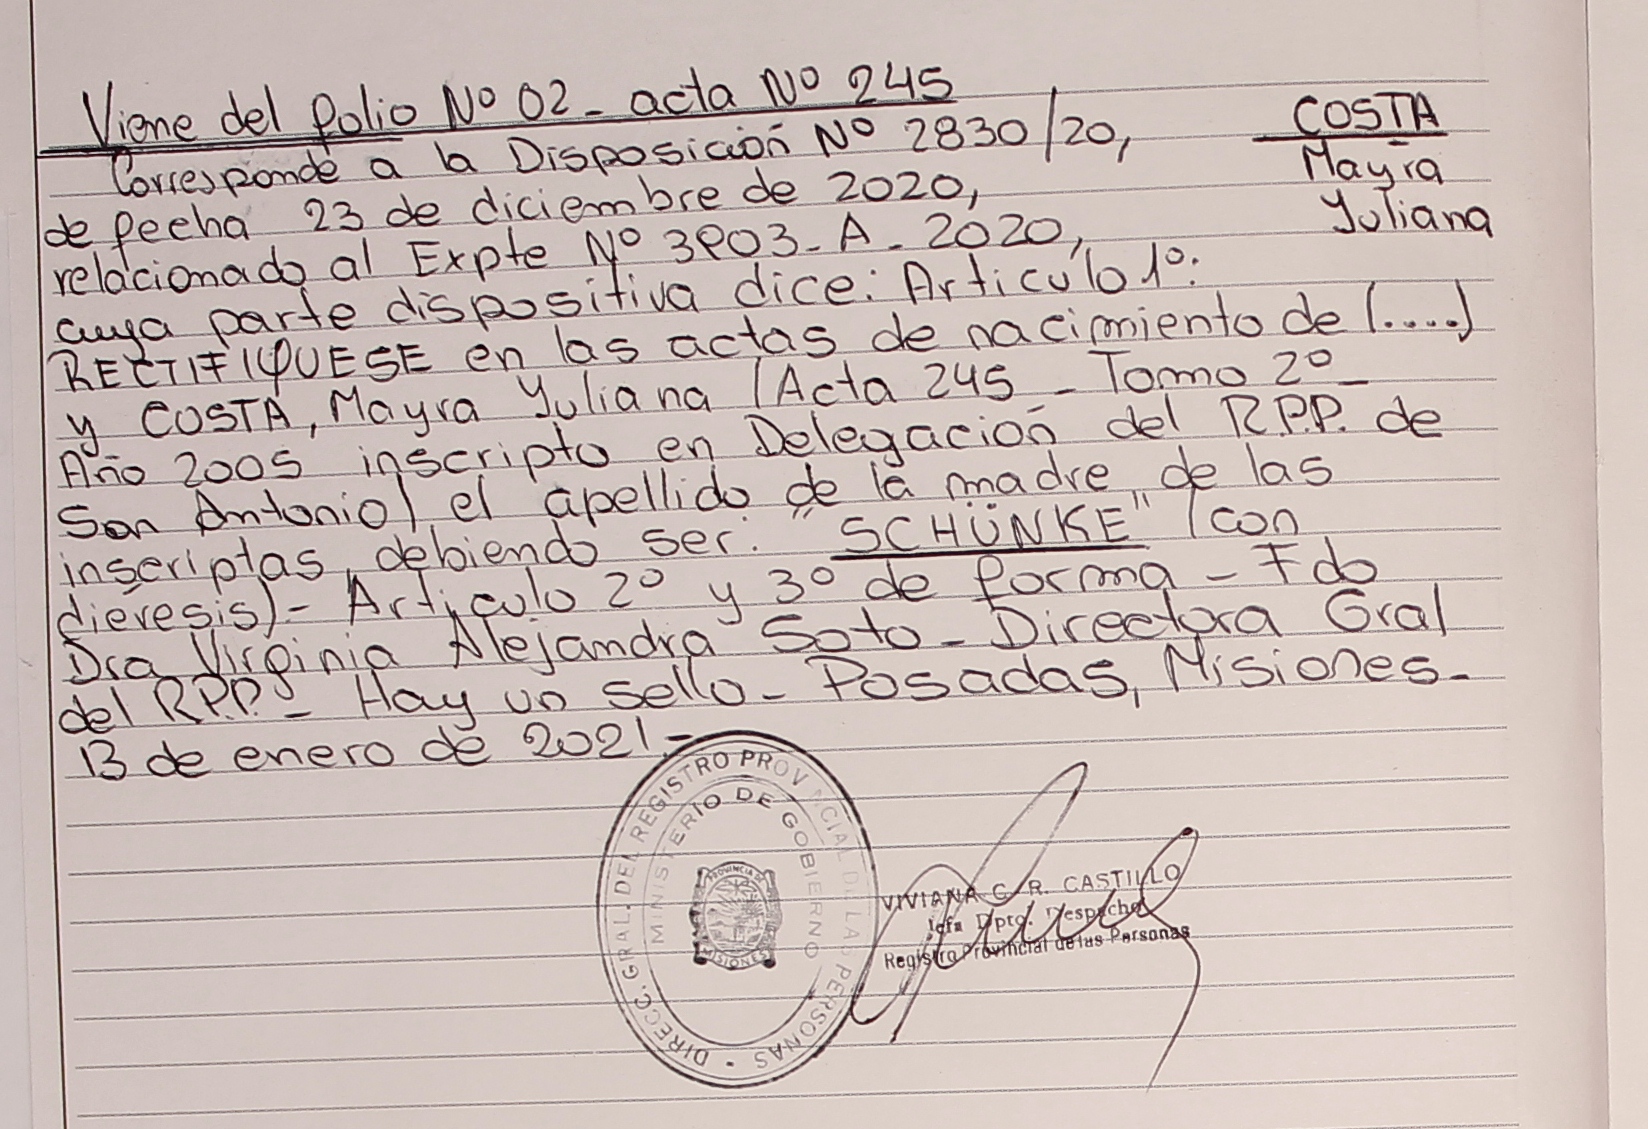 Viene del folio Nº 02 - acta Nº 245
COSTA
Mayra
Yuliana
Corresponde a la Disposición Nº 2830/20,
de fecha 23 de diciembre de 2020,
relacionado al Expte Nº 3903-A-2020,
cuya parte dispositiva dice: Artículo 1º:
RECTIFIQUESE en las actas de nacimiento de (....)
y COSTA, Mayra Yuliana (Acta 245 - Tomo 2º -
Año 2005 inscripto en Delegación del R.P.P. de
San Antonio) el apellido de la madre de las
inscriptas, debiendo ser: "SCHÜNKE" (con
dieresis).- Artículo 2º y 3º de forma - Fdo
Dra Virginia Alejandra Soto - Directora Gral
del R.P.P. - Hay un sello - Posadas, Misiones -
13 de enero de 2021.-
DIRECC. GRAL. DEL REGISTRO PROVINCIAL DE LAS PERSONAS
MINISTERIO DE GOBIERNO
PROVINCIA DE
MISIONES
VIVIANA C. R. CASTILLO
Jefa Dpto. Despacho
Registro Provincial de las Personas